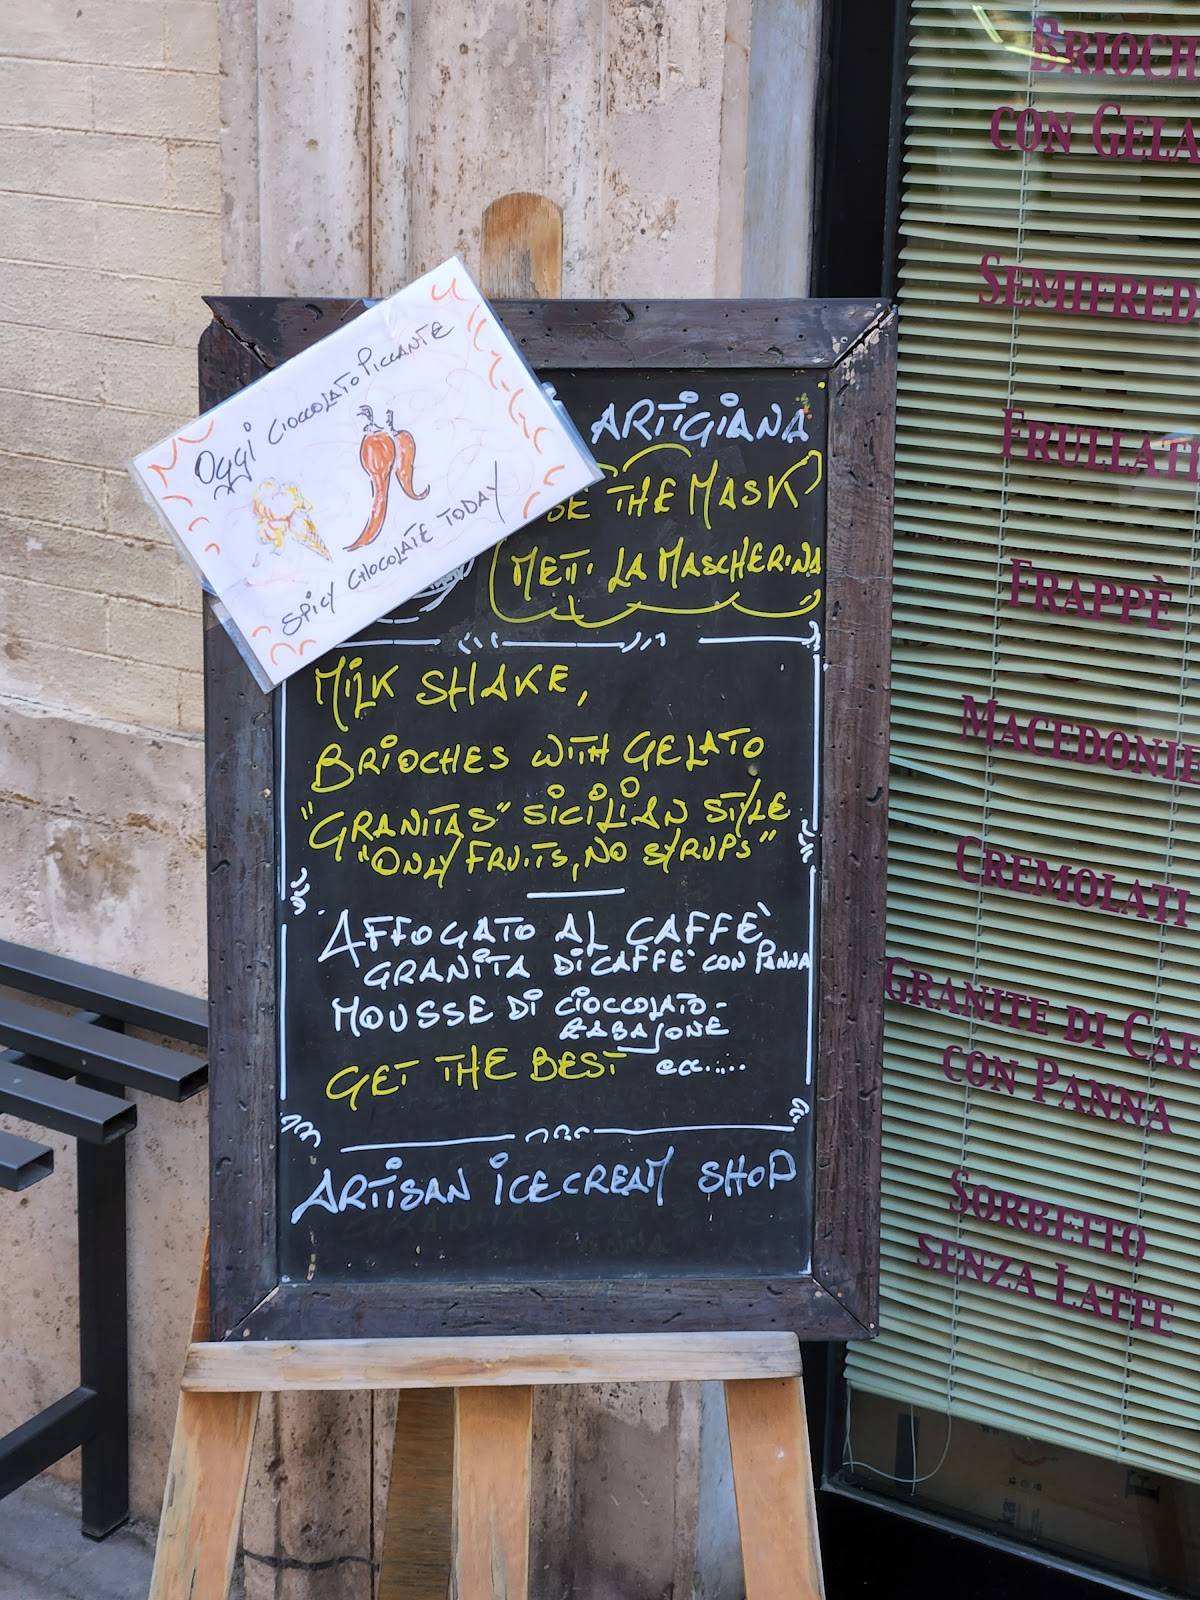 Oggi CIOCCOLATO PICCANTE
SPICY CHOCOLATE TODAY
ARTIGIANA
THE MASK
METTI LA MASCHERINA
MILK SHAKE,
BRIOCHES WITH GELATO
"GRANITAS" SICILIAN STYLE
"ONLY FRUITS, NO SYRUPS"
AFFOGATO AL CAFFÈ
GRANITA DI CAFFÈ CON PANNA
MOUSSE DI CIOCCOLATO -
ZABAJONE
GET THE BEST
ARTISAN ICECREAM SHOP
BRIOCH
CON GELA
SEMIFRED
FRULLATI
FRAPPÈ
MACEDONIE
CREMOLATI
GRANITE DI CAF
CON PANNA
SORBETTO
SENZA LATTE